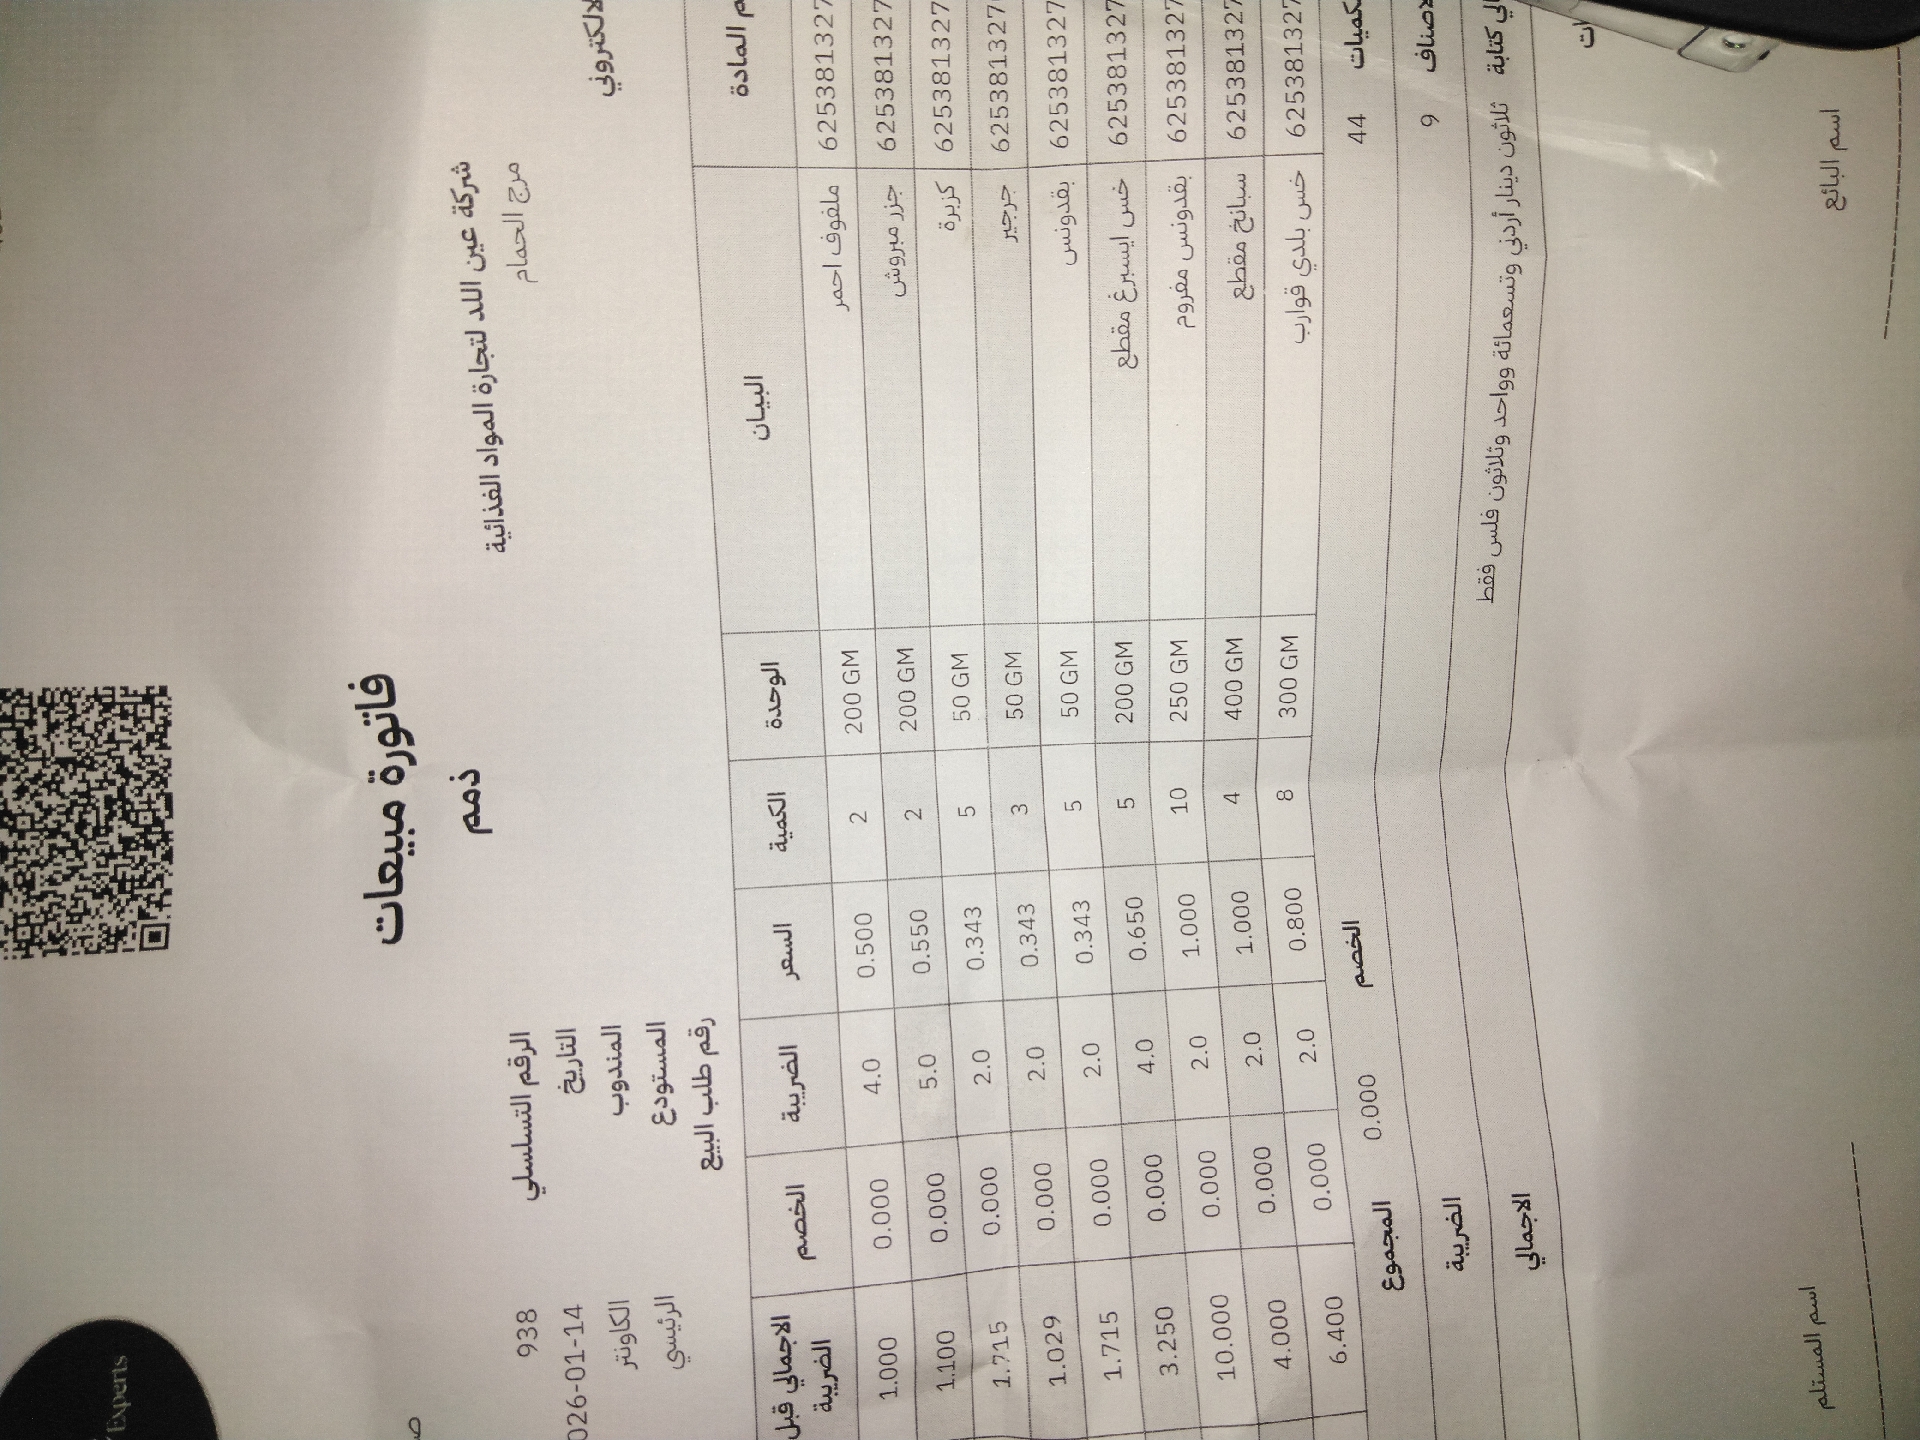 Experts
فاتورة مبيعات
ذمم
شركة عين اللد لتجارة المواد الغذائية
مرج الحمام
الرقم التسلسلي 938
التاريخ 026-01-14
المندوب الكاونتر
المستودع الرئيسي
رقم طلب البيع
المادة البيان الوحدة الكمية السعر الضريبة الخصم الاجمالي قبل الضريبة
625381327 ملفوف احمر 200 GM 2 0.500 4.0 0.000 1.000
625381327 جزر مبروش 200 GM 2 0.550 5.0 0.000 1.100
625381327 كزبرة 50 GM 5 0.343 2.0 0.000 1.715
625381327 جرجير 50 GM 3 0.343 2.0 0.000 1.029
625381327 بقدونس 50 GM 5 0.343 2.0 0.000 1.715
625381327 خس ايسبرغ مقطع 200 GM 5 0.650 4.0 0.000 3.250
625381327 بقدونس مفروم 250 GM 10 1.000 2.0 0.000 10.000
625381327 سبانخ مقطع 400 GM 4 1.000 2.0 0.000 4.000
625381327 خس بلدي قوارب 300 GM 8 0.800 2.0 0.000 6.400
44 الخصم 0.000 المجموع
9 الضريبة
كتابة ثلاثون دينار أردني وتسعمائة وواحد وثلاثون فلس فقط الاجمالي
اسم البائع اسم المستلم